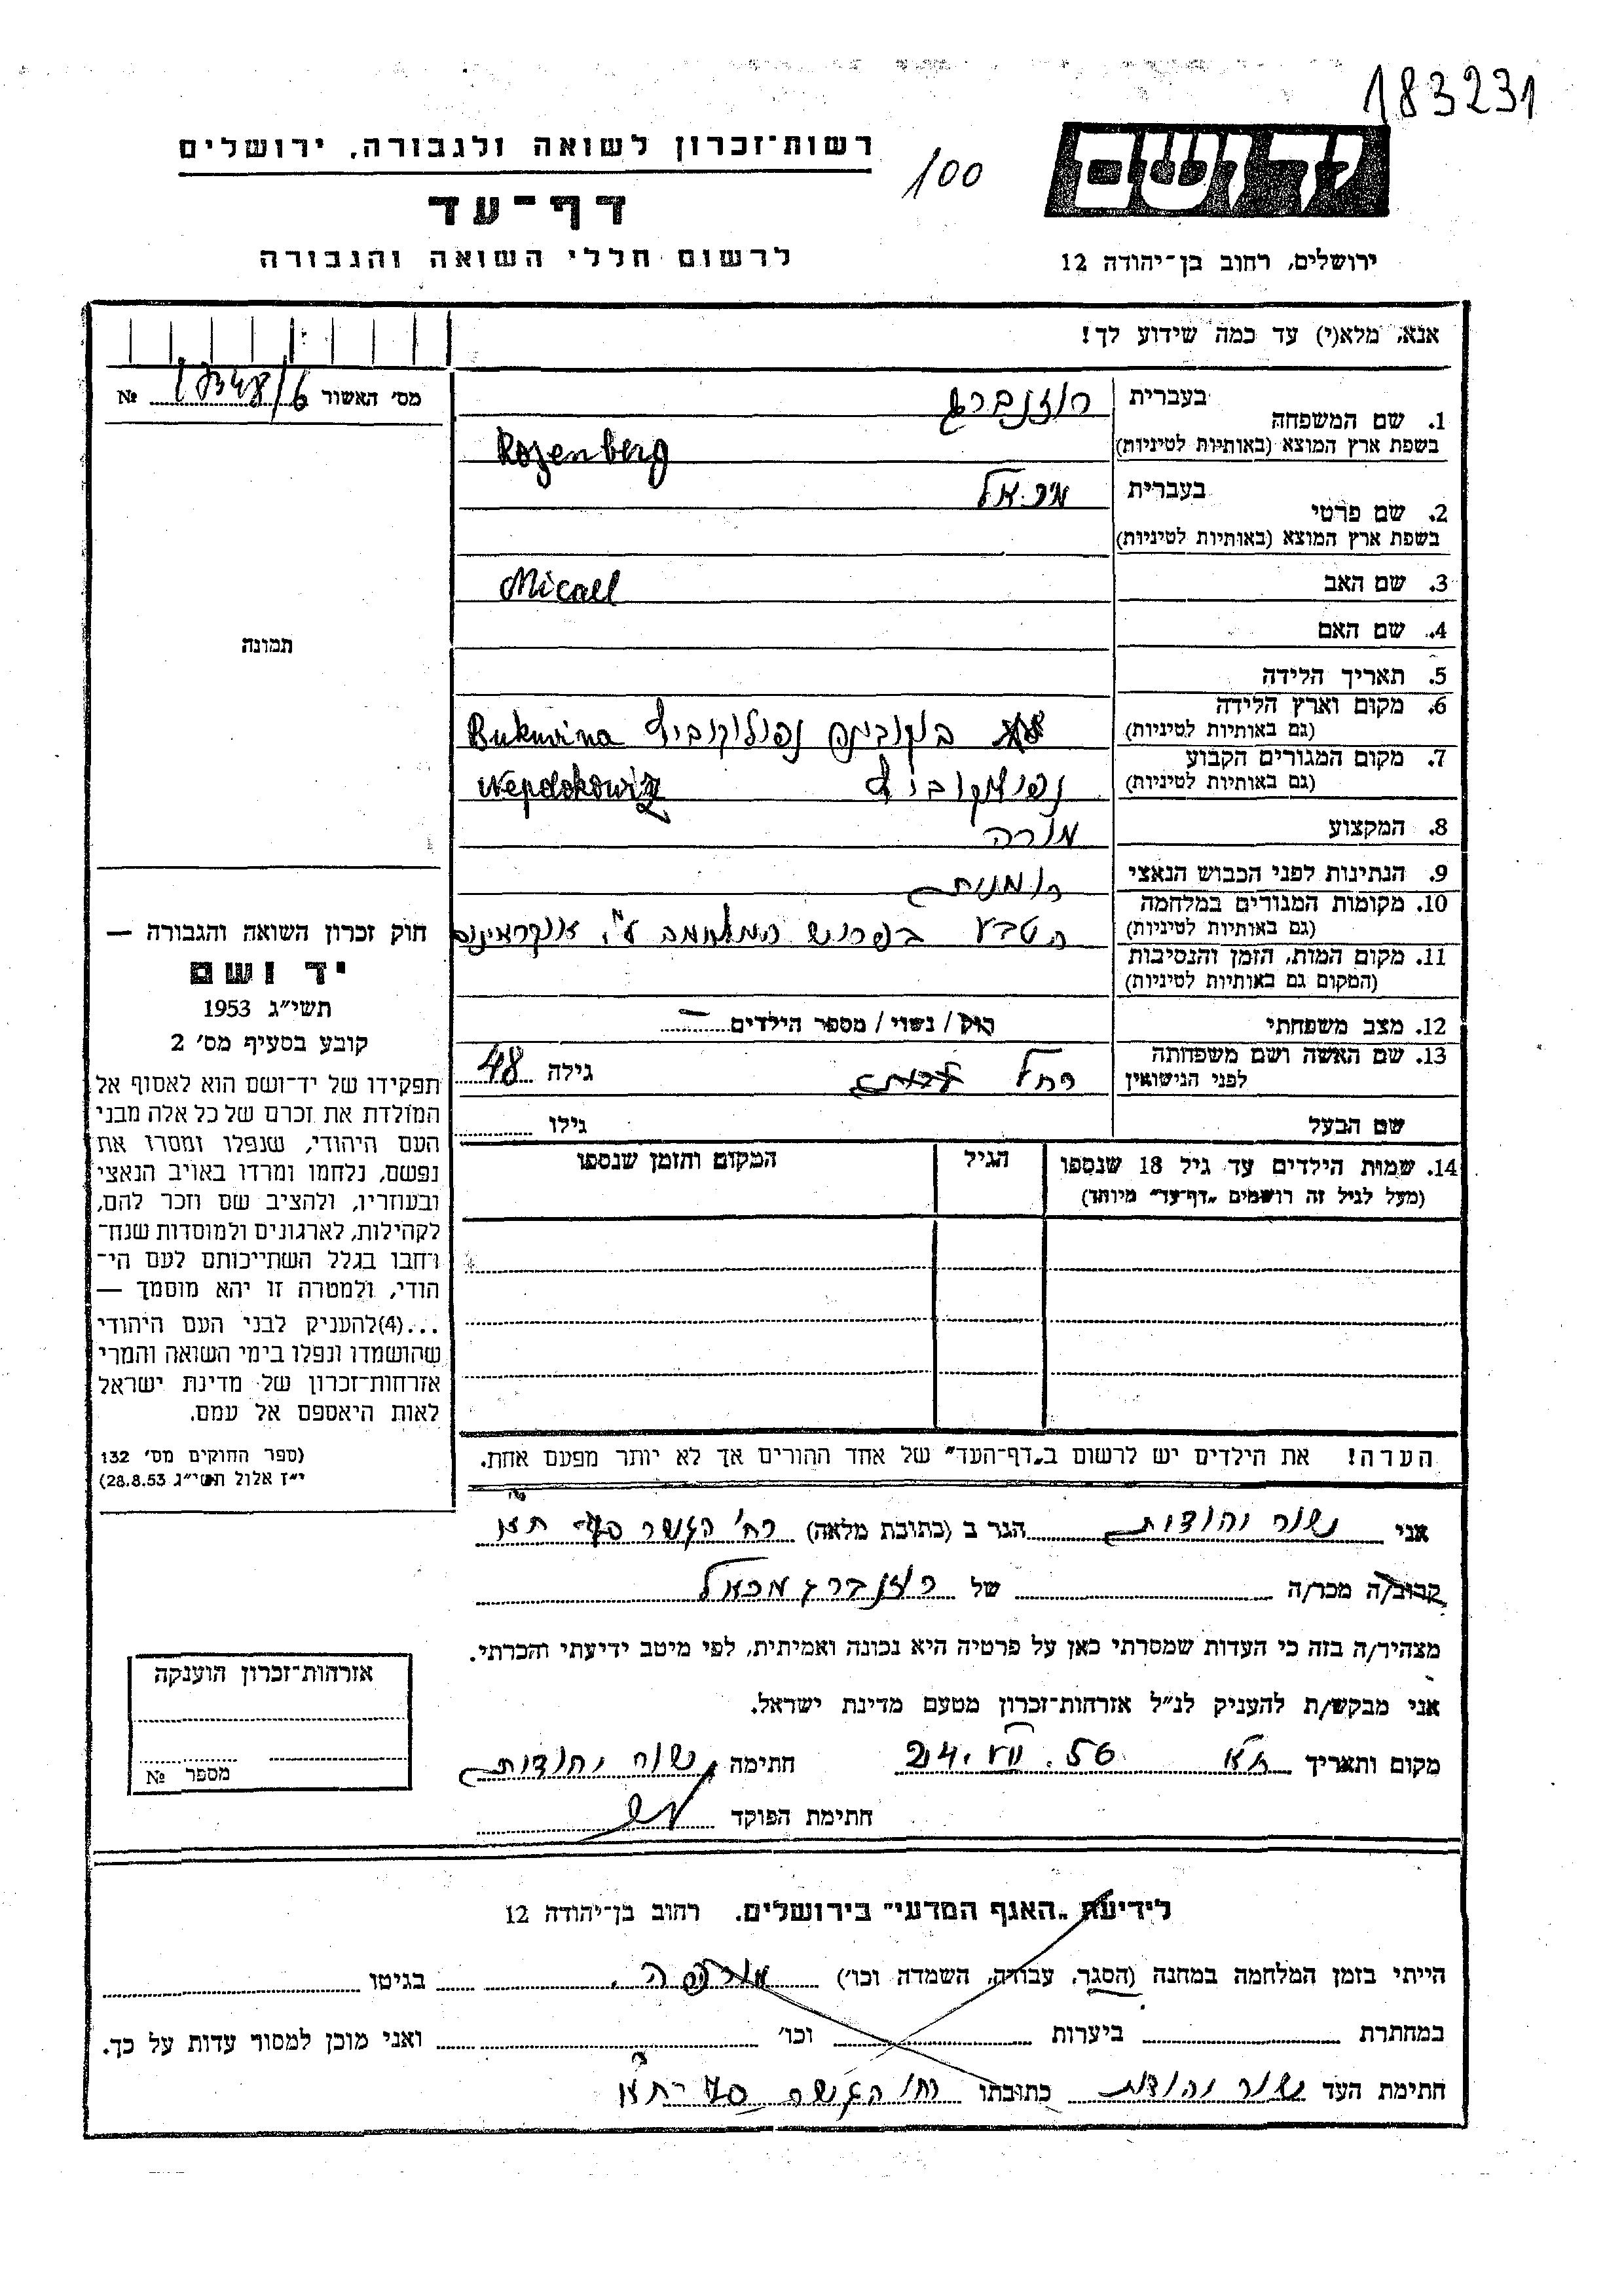 183231
רשות־זכרון לשואה ולגבורה, ירושלים
100
יד ושם
דף־עד
לרשום חללי השואה והגבורה
ירושלים, רחוב בן־יהודה 12
אנא, מלא(י) עד כמה שידוע לך!
מס׳ האשור №
1. שם המשפחה בעברית רוזנברג
בשפת ארץ המוצא (באותיות לטיניות) Rozenberg
2. שם פרטי בעברית מכאל
בשפת ארץ המוצא (באותיות לטיניות)
3. שם האב Micael
4. שם האם
5. תאריך הלידה
6. מקום וארץ הלידה
(גם באותיות לטיניות) בוקובינה נפולוקוביץ Bukuvina
7. מקום המגורים הקבוע
(גם באותיות לטיניות) נפולוקוביץ Nepolokowiz
8. המקצוע מורה
9. הנתינות לפני הכבוש הנאצי רומנית
10. מקומות המגורים במלחמה
(גם באותיות לטיניות) הטבע בפרוש המלחמה ע״י אוקראינים
11. מקום המות, הזמן והנסיבות
(המקום גם באותיות לטיניות)
12. מצב משפחתי רוק / נשוי / מספר הילדים –
13. שם האשה ושם משפחתה
לפני הנישואין רחל גילה 48
שם הבעל גילו
14. שמות הילדים עד גיל 18 שנספו הגיל המקום והזמן שנספו
(מעל לגיל זה רושמים „דף־עד״ מיוחד)
הערה! את הילדים יש לרשום ב„דף־העד״ של אחד ההורים אך לא יותר מפעם אחת.
תמונה
חוק זכרון השואה והגבורה —
יד ושם
תשי״ג 1953
קובע בסעיף מס׳ 2
תפקידו של יד־ושם הוא לאסוף אל
המולדת את זכרם של כל אלה מבני
העם היהודי, שנפלו ומסרו את
נפשם, נלחמו ומרדו באויב הנאצי
ובעוזריו, ולהציב שם וזכר להם,
לקהילות, לארגונים ולמוסדות שנח־
רחבו בגלל השתייכותם לעם הי־
הודי, ולמטרה זו יהא מוסמך —
...(4)להעניק לבני העם היהודי
שהושמדו ונפלו בימי השואה והמרי
אזרחות־זכרון של מדינת ישראל
לאות היאספם אל עמם.
(ספר החוקים מס׳ 132
י״ז אלול תשי״ג 28.8.53)
אני נשור יהודית הגר ב (כתובת מלאה) רח׳ הגשר ת״א
קרוב/ה מכר/ה של רוזנברג מכאל
מצהיר/ה בזה כי העדות שמסרתי כאן על פרטיה היא נכונה ואמיתית, לפי מיטב ידיעתי והכרתי.
אני מבקש/ת להעניק לנ״ל אזרחות־זכרון מטעם מדינת ישראל.
מקום ותאריך ת״א 24.VII.56 חתימה נשור יהודית
חתימת הפוקד
אזרחות־זכרון הוענקה
מספר №
לידיעת „האגף המדעי״ בירושלים, רחוב בן־יהודה 12
הייתי בזמן המלחמה במחנה (הסגר, עבודה, השמדה וכו׳) בגיטו
במחתרת ביערות וכו׳ ואני מוכן למסור עדות על כך.
חתימת העד נשור יהודית כתובתו רח׳ הגשר ת״א